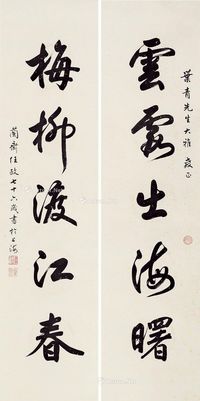 葉青先生大雅教正
雲霞出海曙
梅柳渡江春
蘭齋任政七十六歲書於上海